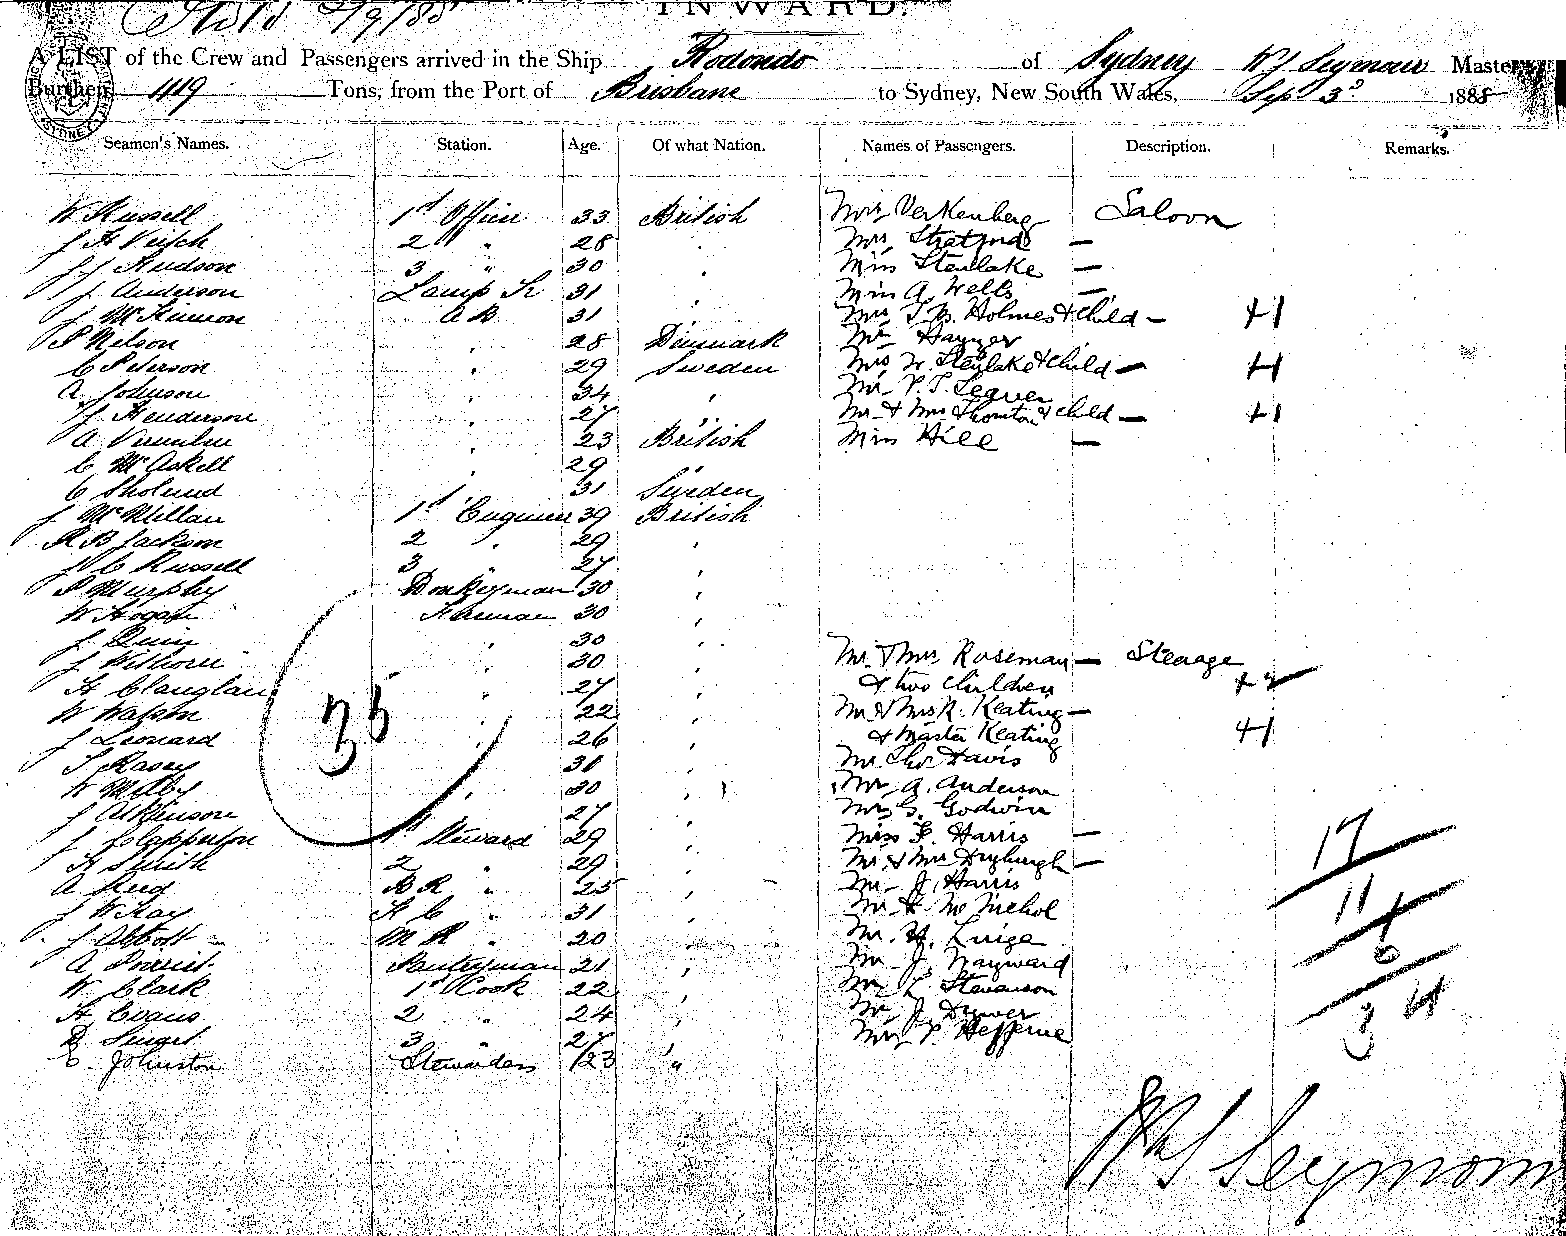 INWARD.
A LIST of the Crew and Passengers arrived in the Ship Rodondo of Sydney W J Seymour Master
Burthen 1119 Tons, from the Port of Brisbane to Sydney, New South Wales, Sep 3d 1885
Seamen's Names. Station. Age. Of what Nation. Names of Passengers. Description. Remarks.
W Russell 1st Officer 33 British Mrs Verkenberg Saloon
J H Veitch 2 " 28 " Mrs Stratford —
J J Hudson 3 " 30 " Miss Stenlake —
J Anderson Lamp Tr 31 " Miss A. Wells —
J McKinnon A B 31 " Mrs T. B. Holmes & Child — +1
P Nelson " 28 Denmark Mr
C Peterson " 29 Sweden Mrs W. Stenlake & Child — +1
A Johnson " 34 " Mr P. T.
J Henderson " 27 " Mr & Mrs Thornton & child — +1
A 23 British Miss Hill —
C McAskell " 29 "
C 31 Sweden
J McMillan 1st Engineer 39 British
R B Jackson 2 " 29 "
J C Russell 3 " 27 "
P Murphy Donkeyman 30 "
W Hogan Fireman 30 "
J Quin " 30 "
J " 30 " Mr & Mrs Roseman — Steerage
H " 27 " & two children +2
W 22 " Mr & Mrs R. Keating —
J Leonard " 26 " & Master Keating +1
T Kasey " 31 " Mr Thos Davis
W " 30 " Mr A. Anderson
J Atkinson 27 " Mr G. Godwin
J Clapperton 1st Steward 29 " Miss F. Harris —
H Smith 2 " 29 " Mr & Mrs Dryburgh —
A Reid B R " 25 " Mr J. Harris
J W Kay F C " 31 " Mr H McNichol
J Abbott M R " 20 " Mr H.
A Pantryman 21 " Mr J. Hayward
W Clark 1st Cook 22 " Mr Stevenson
H Evans 2 " 24 " Mr J. Dwyer
3 " 27 " Mr
E. Johnston Stewardess 23 "
35
17
11
6
34
W J Seymour